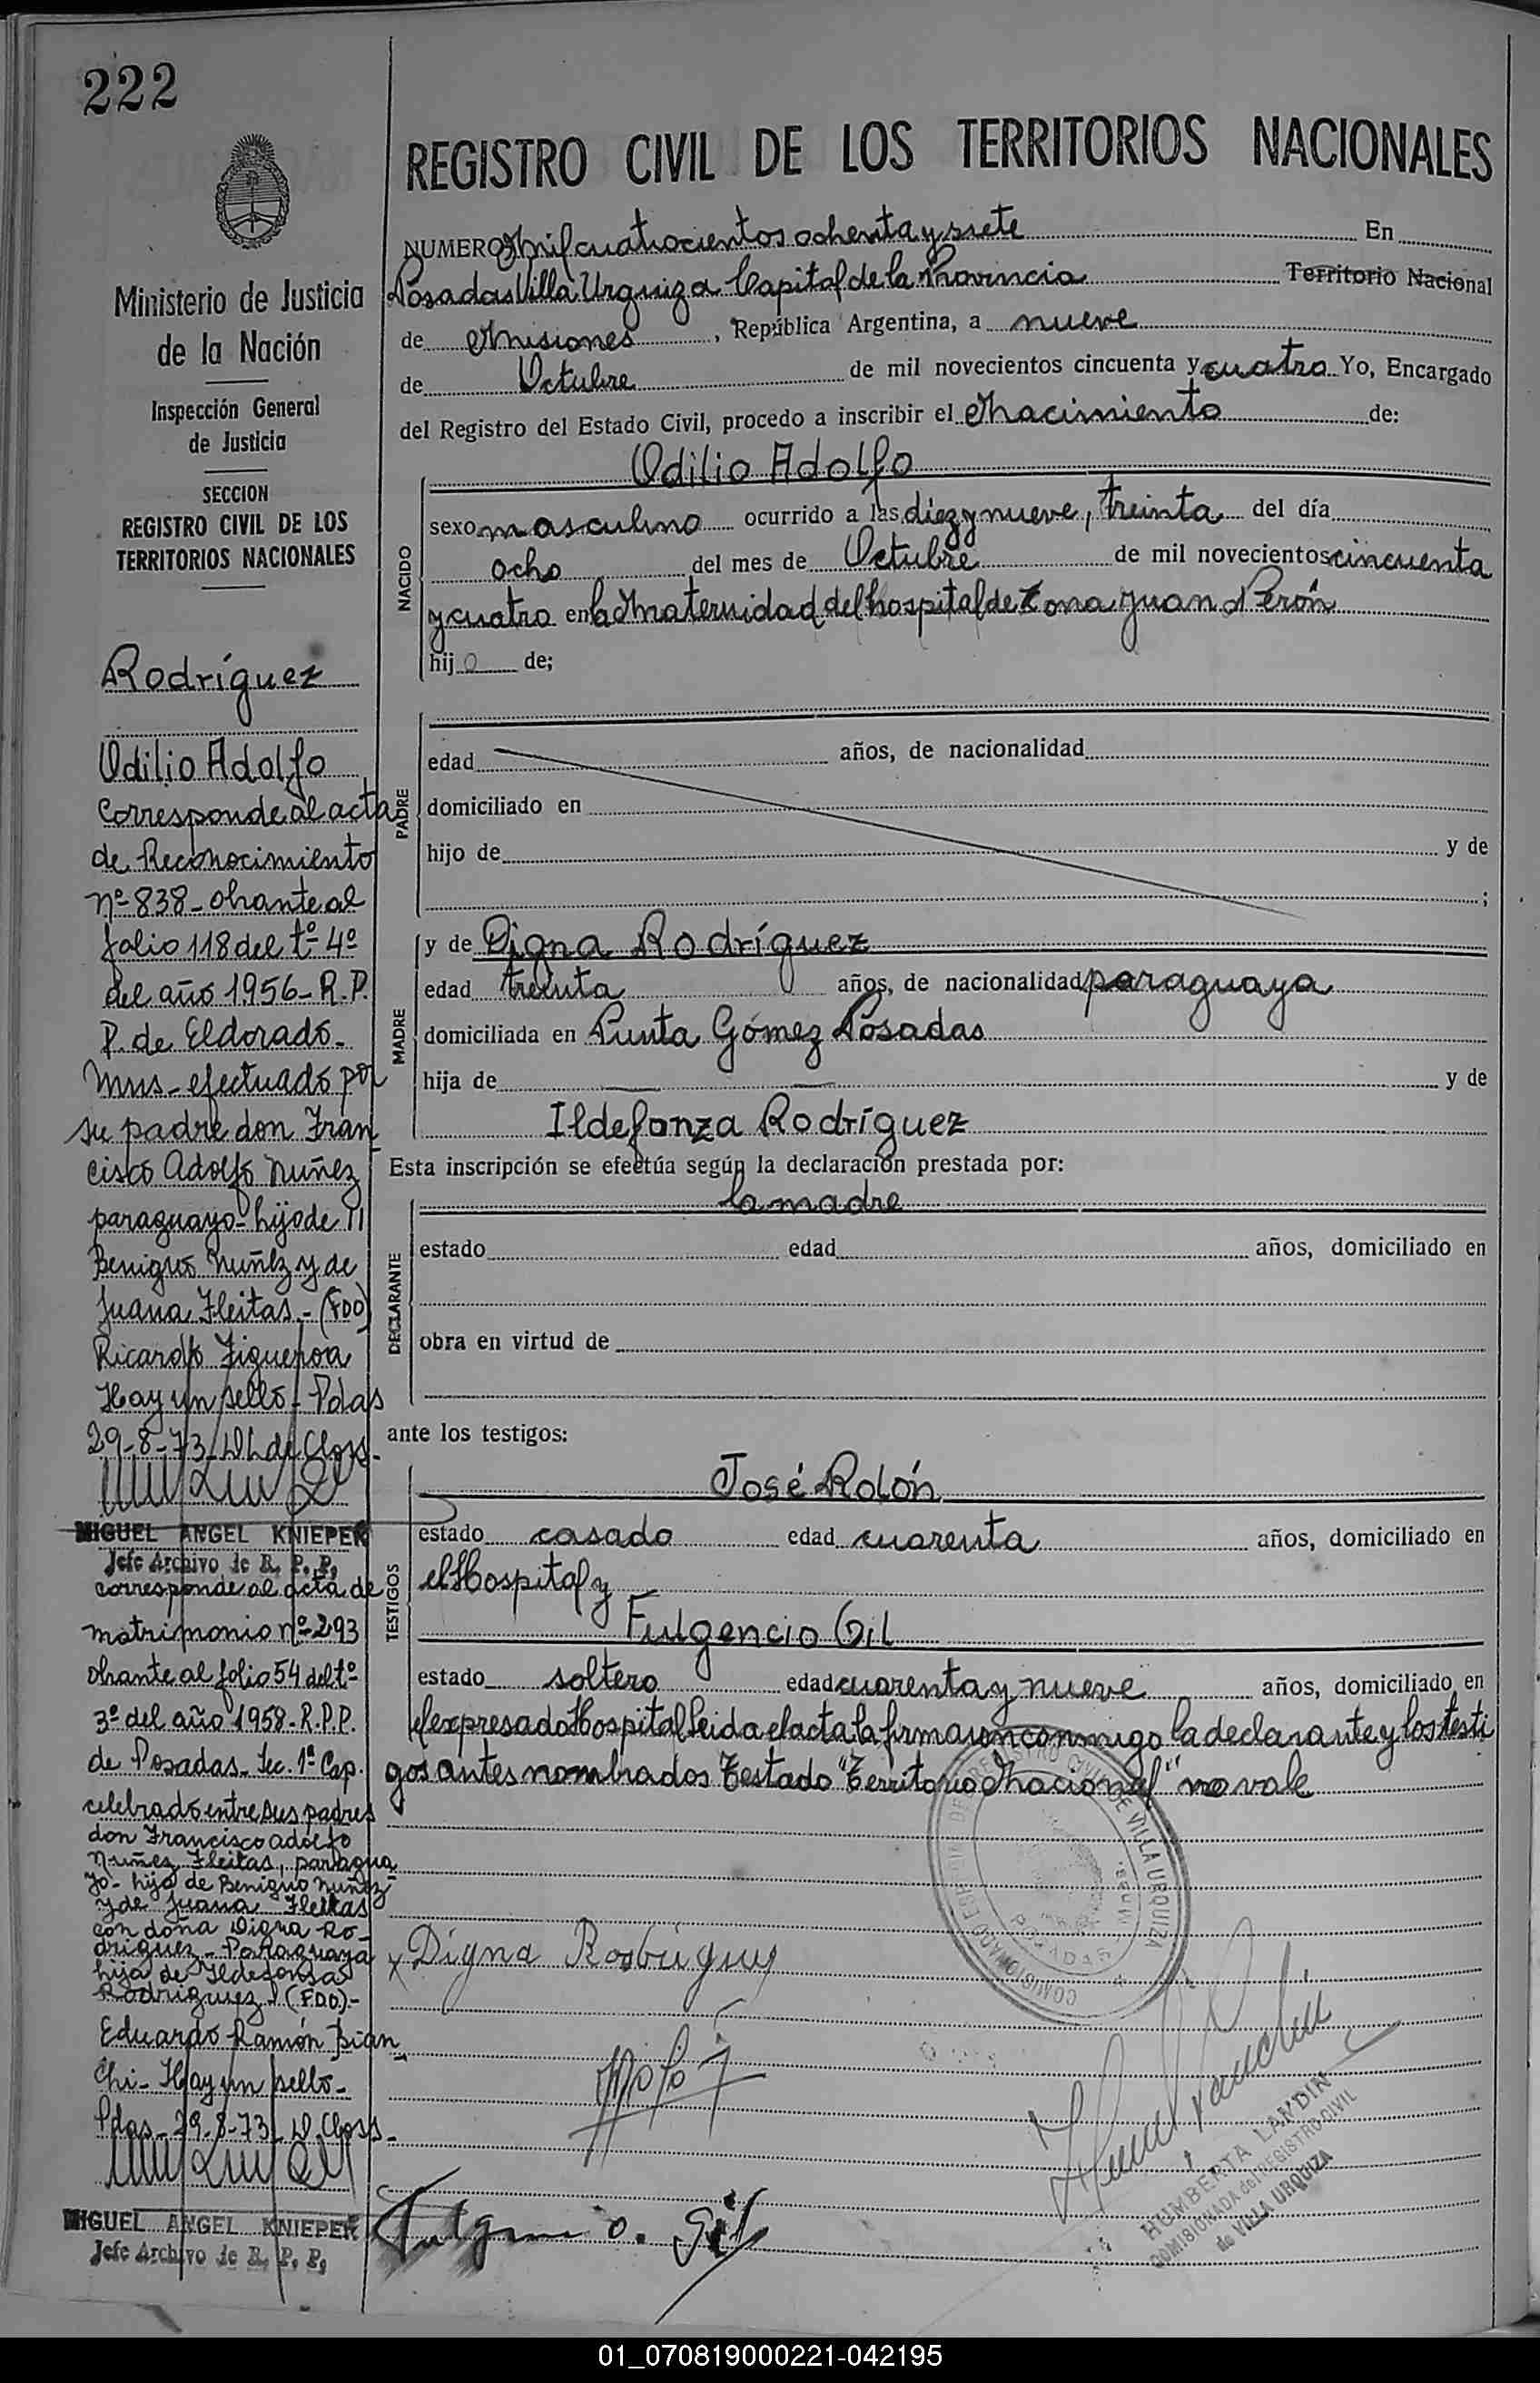 222
Ministerio de Justicia
de la Nación
Inspección General
de Justicia
SECCION
REGISTRO CIVIL DE LOS
TERRITORIOS NACIONALES
Rodríguez
Odilio Adolfo
Corresponde al acta
de Reconocimiento
nº 838- obrante al
folio 118 del tº 4º
del año 1956- R.P.
P. de Eldorado-
Mnes- efectuado por
su padre don Fran
cisco Adolfo Nuñez
paraguayo- hijo de
Benigno Nuñez y de
Juana Fleitas.- (FDO)
Ricardo Figueroa
Hay un sello- Pdas
29-8-73
MIGUEL ANGEL KNIEPER
Jefe Archivo de R. P. P.
corresponde al acta de
matrimonio nº 293
obrante al folio 54 del tº
3º del año 1958- R.P.P.
de Posadas- Sec. 1ª Cap.
celebrado entre sus padres
don Francisco Adolfo
Nuñez Fleitas, paragua
yo- hijo de Benigno Nuñez
y de Juana Fleitas
con doña Digna Ro-
driguez- Paraguaya
hija de Ildefonsa
Rodriguez- (FDO).-
Eduardo Ramón Bian
chi- Hay un sello-
Pdas- 29-8-73 D. Closs-
MIGUEL ANGEL KNIEPER
Jefe Archivo de R. P. P.
REGISTRO CIVIL DE LOS TERRITORIOS NACIONALES
NUMERO Mil cuatrocientos ochenta y siete En
Posadas Villa Urquiza Capital de la Provincia Territorio Nacional
de Misiones, República Argentina, a nueve
de Octubre de mil novecientos cincuenta y cuatro Yo, Encargado
del Registro del Estado Civil, procedo a inscribir el Nacimiento de:
Odilio Adolfo
NACIDO
sexo masculino ocurrido a las diez y nueve, treinta del día
ocho del mes de Octubre de mil novecientos cincuenta
y cuatro en la Maternidad del hospital de Zona Juan D Perón
hijo de;
PADRE
edad años, de nacionalidad
domiciliado en
hijo de y de
;
MADRE
y de Digna Rodríguez
edad treinta años, de nacionalidad paraguaya
domiciliada en Punta Gómez Posadas
hija de y de
Ildefonza Rodríguez
Esta inscripción se efectúa según la declaración prestada por:
la madre
DECLARANTE
estado edad años, domiciliado en
obra en virtud de
ante los testigos:
José Rolón
TESTIGOS
estado casado edad cuarenta años, domiciliado en
el Hospital y
Fulgencio Gil
estado soltero edad cuarenta y nueve años, domiciliado en
el expresado Hospital leida el acta la firmaron conmigo la declarante y los testi
gos antes nombrados Testado "Territorio Nacional" no vale
VILLA URQUIZA
POSADAS
Digna Rodriguez
Fulgencio. Gil
HUMBERTA LANDIN
COMISIONADA del REGISTRO CIVIL
de VILLA URQUIZA
01_070819000221-042195